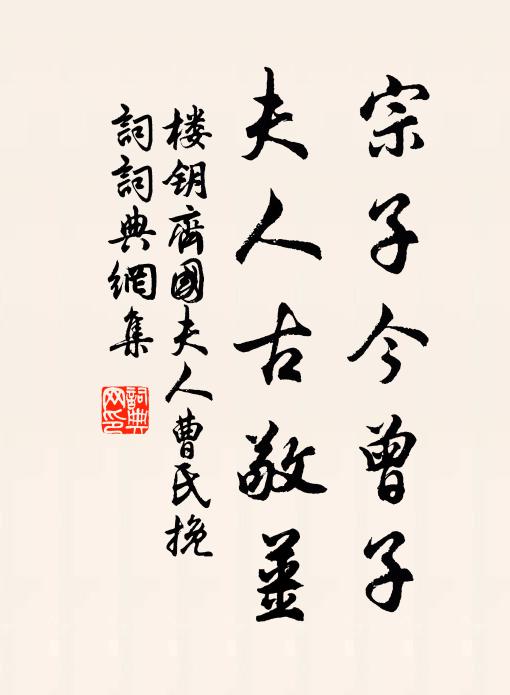 宗子今曾子
夫人古敬姜
楼钥齊國夫人曹氏挽
詞詞典網集
詞典网印